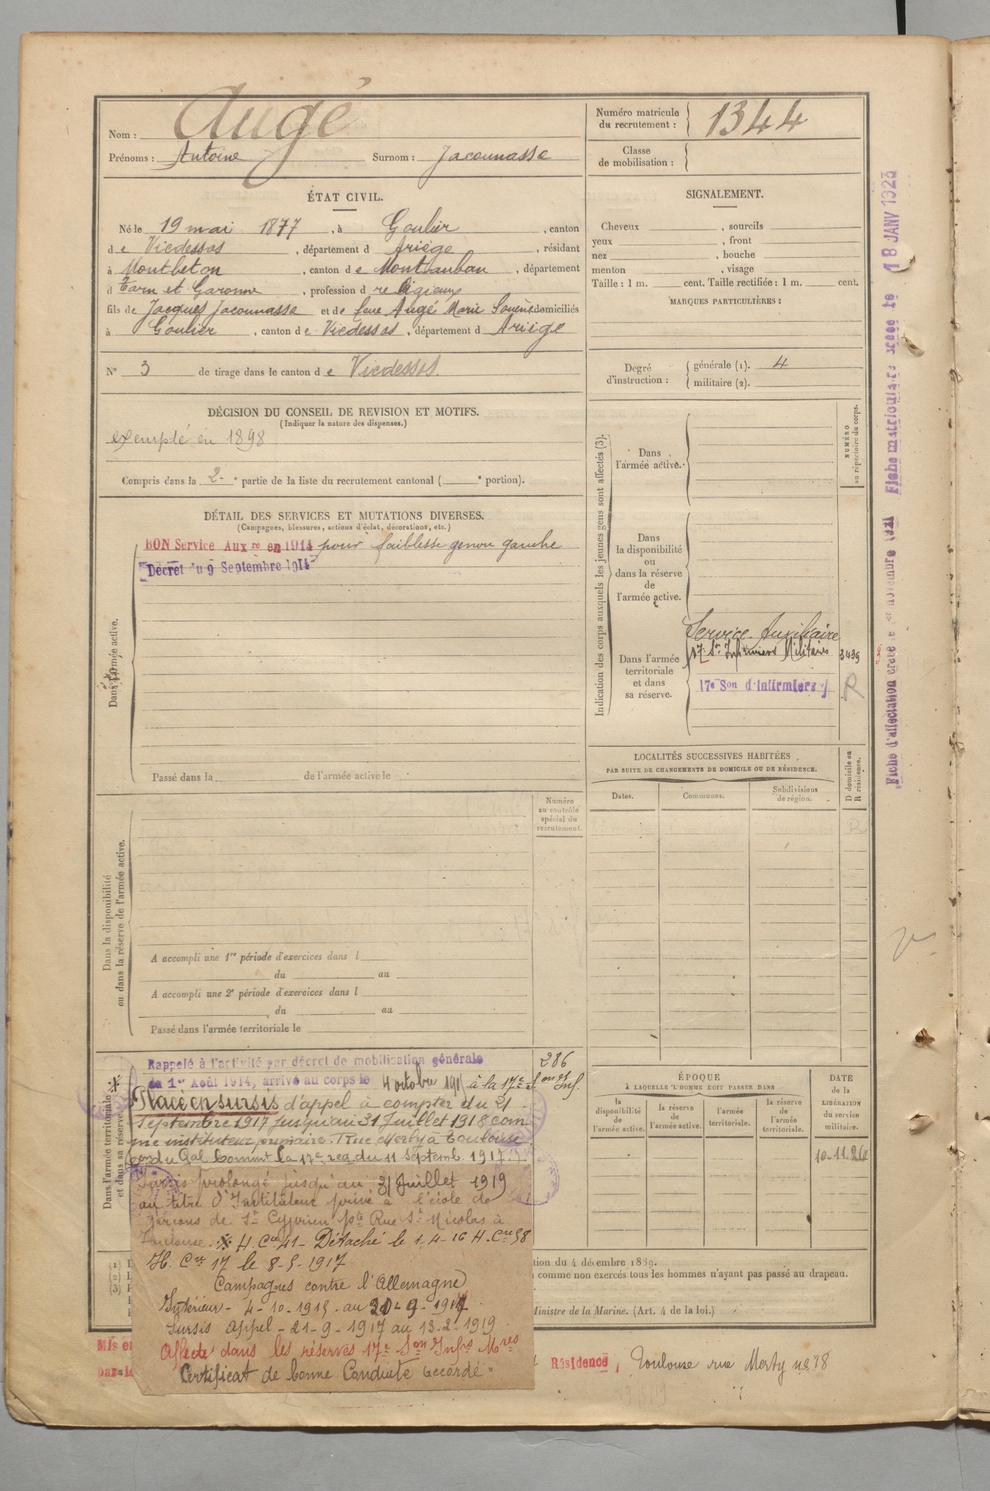 Nom : Augé
Prénoms : Antoine Surnom : Jacounasse
Numéro matricule du recrutement : 1344
Classe de mobilisation :
ÉTAT CIVIL.
Né le 19 mai 1877, à Goulier, canton
de Vicdessos, département d Ariège, résidant
à Montbeton, canton de Montauban, département
d Tarn et Garonne, profession d religieux
fils de Jacques Jacounasse et de feue Augé Marie domiciliés
à Goulier, canton de Vicdessos, département d Ariège
N° 3 de tirage dans le canton de Vicdessos
SIGNALEMENT.
Cheveux , sourcils
yeux , front
nez , bouche
menton , visage
Taille : 1 m. cent. Taille rectifiée : 1 m. cent.
MARQUES PARTICULIÈRES :
Degré d'instruction : générale (1). 4
militaire (2).
DÉCISION DU CONSEIL DE REVISION ET MOTIFS.
(Indiquer la nature des dispenses.)
exempté en 1898
Compris dans la 2e partie de la liste du recrutement cantonal ( e portion).
DÉTAIL DES SERVICES ET MUTATIONS DIVERSES.
(Campagnes, blessures, actions d'éclat, décorations, etc.)
BON Service Auxre en 1914 pour faiblesse genou gauche
Décret du 9 Septembre 1914
Dans l'armée active.
Passé dans la de l'armée active le
Indication des corps auxquels les jeunes gens sont affectés (3).
NUMÉRO au répertoire du corps.
Dans l'armée active.
Dans la disponibilité ou dans la réserve de l'armée active.
Dans l'armée territoriale et dans sa réserve.
Service Auxiliaire
17e Son Infirmiers Militaires 3439
17e Son d'infirmiers R
LOCALITÉS SUCCESSIVES HABITÉES
PAR SUITE DE CHANGEMENTS DE DOMICILE OU DE RÉSIDENCE.
Dates. Communes. Subdivisions de région. D domicile ou R résidence.
R
Numéro au contrôle spécial du recrutement.
Dans la disponibilité ou dans la réserve de l'armée active.
A accompli une 1re période d'exercices dans l
du au
A accompli une 2e période d'exercices dans l
du au
Passé dans l'armée territoriale le
Dans l'armée territoriale et dans sa réserve.
286
Rappelé à l'activité par décret de mobilisation générale
du 1er Août 1914, arrivé au corps le 4 octobre 191 à la 17e Son Inf.
Placé en sursis d'appel à compter du 21
Septembre 1917 jusqu'au 31 Juillet 1918 com
me instituteur primaire. 1 Rue Merly à Toulouse
du Gal Commt la 17e reg du 11 Septemb. 1917
Sursis prolongé jusqu'au 31 Juillet 1919
au titre d'Instituteur privé à l'école de
garçons de St Cyprien pte Rue St Nicolas à
Toulouse. H. Cel 41 - Détaché le 1.4-16 H. Cre 58
H. Cre 17 le 8-5-1917
Campagnes contre l'Allemagne
Intérieur - 4-10-1915 au 20-9-1917
Sursis appel - 21-9-1917 au 13-2-1919
Affecté dans les réserves 17e Son Infrs Mres
Certificat de bonne Conduite accordé
ÉPOQUE
À LAQUELLE L'HOMME DOIT PASSER DANS
la disponibilité de l'armée active.
la réserve de l'armée active.
l'armée territoriale.
la réserve de l'armée territoriale.
DATE de la LIBÉRATION du service militaire.
10.11.26
tion du 4 décembre 1889.
comme non exercés tous les hommes n'ayant pas passé au drapeau.
Ministre de la Marine. (Art. 4 de la loi.)
Mis en
par
Résidence, Toulouse rue Merly no 38
Fiche d'affectation créée le novembre 1921 Fiche matriculaire créée le 18 JANV 1923